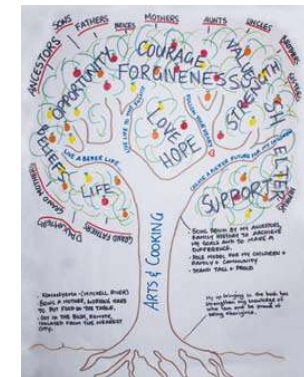 ANCESTORS
SONS
FATHERS
NEICES
MOTHERS
AUNTS
UNCLES
BROTHERS
SISTERS
COURAGE
FORGIVENESS
OPPORTUNITY
VALUES
STRENGTH
SHELTER
BELIEFS
LOVE
HOPE
LIFE
SUPPORT
LIVE A BETTER LIFE
LIVE LIFE TO THE FULLEST
CREATE A BETTER FUTURE FOR MY CHILDREN
GRAND MOTHERS
GRAND FATHERS
DAUGHTERS
ARTS & COOKING
- BEING BEGUN BY MY ANCESTORS,
FAMILY HISTORY TO ACHIEVE
MY GOALS AND TO MAKE A
DIFFERENCE.
- ROLE MODEL FOR MY CHILDREN &
FAMILY & COMMUNITY
- STAND TALL & PROUD
(MITCHELL RIVER)
BEING A MOTHER, WORKING HARD
TO PUT FOOD ON THE TABLE.
OUT IN THE BUSH, REMOTE,
ISOLATED FROM THE NEAREST
CITY.
My up bringing in the bush has
strengthen my knowledge of
who I am and be proud of
being Aboriginal.